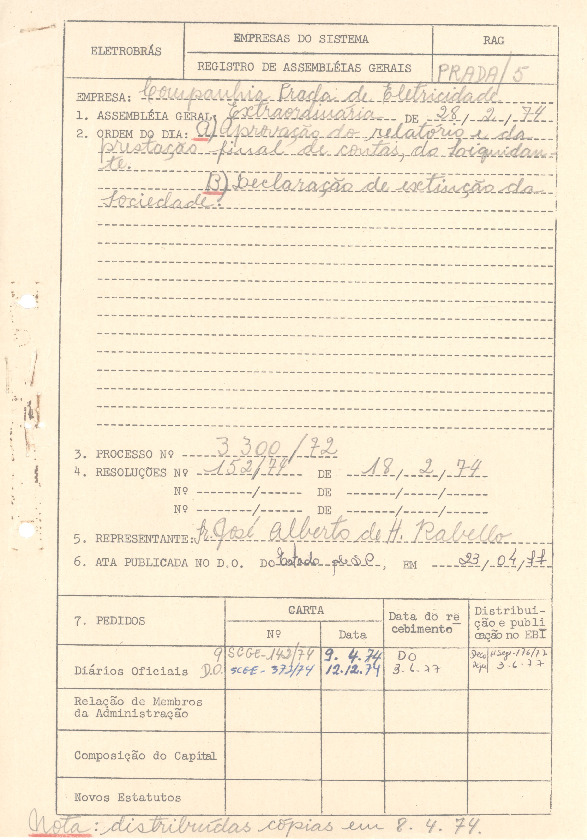 ELETROBRÁS
EMPRESAS DO SISTEMA
RAG
REGISTRO DE ASSEMBLÉIAS GERAIS
PRADA/5
EMPRESA: Companhia Prada de Eletricidade
1. ASSEMBLÉIA GERAL: Extraordinária DE 28/2/74
2. ORDEM DO DIA: A) Aprovação do relatório e da
prestação final de contas, do liquidan-
te.
B) Declaração de extinção da
sociedade.
3. PROCESSO Nº 3300/72
4. RESOLUÇÕES Nº 152/74 DE 18/2/74
Nº ------/---- DE ----/---/----
Nº ------/---- DE ----/---/----
5. REPRESENTANTE: Sr. José Alberto de H. Rabello
6. ATA PUBLICADA NO D.O. DO Estado de S.P., EM 23/04/77
7. PEDIDOS
CARTA
Nº
Data
Data do re
cebimento
Distribui-
ção e publi
cação no EBI
Diários Oficiais
9 SCGE-142/74 9.4.74 DO
D.O. SCGE-372/74 12.12.74 3-6-77 3-6-77
Relação de Membros
da Administração
Composição do Capital
Novos Estatutos
Nota: distribuídas cópias em 8.4.74.